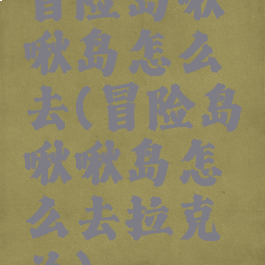 冒险岛啾
啾岛怎么
去(冒险岛
啾啾岛怎
么去拉克